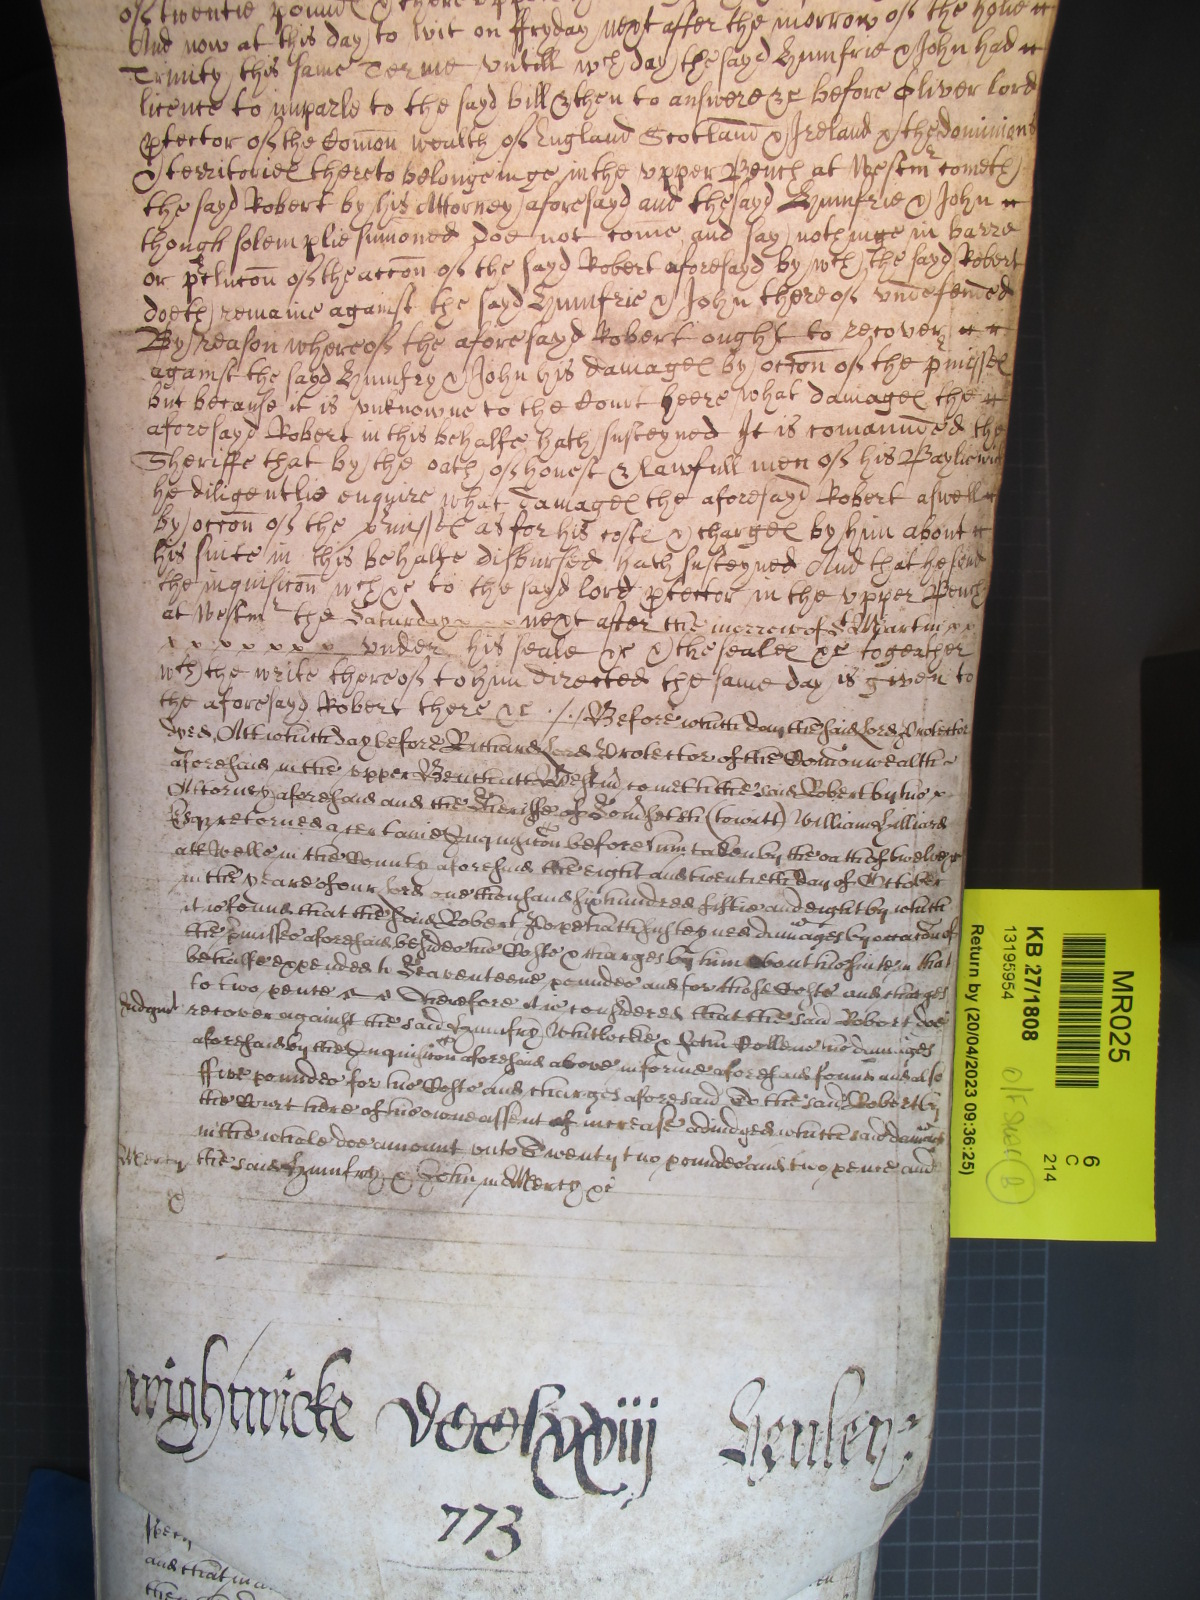 of twentie pound & there upp
And now at this day to wit on ffryday next after the morrow of the holie
Trinity this same Terme untill wch day the sayd Humfrie & John had
licence to imparle to the sayd bill & then to answere &c before Oliver lord
ptector of the Comon wealth of England Scotland & Ireland & the dominions
& territories thereto belongeinge in the upper Bench at Westmr cometh
the sayd Robert by his Attorney aforesayd and the sayd Humfrie & John
though solemplie sumoned doe not come and say nothinge in barre
or pclucon of the accon of the sayd Robert aforesayd by wch the sayd Robert
doeth remaine against the sayd Humfrie & John thereof undefended
By reason whereof the aforesayd Robert ought to recover
against the sayd Humfry & John his damages by occon of the pmisses
but because it is unknowne to the Court heere what damages the
aforesayd Robert in this behalfe hath susteyned It is comaunded the
Sheriffe that by the oath of honest & lawfull men of his Bayliewick
he diligentlie enquire what damages the aforesayd Robert aswell
by occon of the pmisses as for his costs & charges by him about
his suite in this behalfe disbursed hath susteyned And that he send
the inquisicon wch &c to the sayd lord ptector in the upper Bench
at Westmr the Saturday next after the morrow of St Martin
under his seale &c & the seales &c togeather
wth the write thereof to him directed the same day is given to
the aforesayd Robert there &c ./. Before which day the said Lord Protector
dyed, Att which day before Richard Lord Protector of the Comonwealth
aforesaid in the upper Bench att Westmr cometh the said Robert by his
Attorney aforesaid and the Sheriffe of Somersett (towitt) William Hilliard
Esqr retorned a certaine Inquisicon before him taken by the oath of twelve
att Wells in the County aforesaid the eight and twentieth day of October
in the yeare of our Lord one thousand six hundred fiftie and eight by which
it is found that the said Robert hath susteyned damages by occacon of
the pmisses aforesaid besides his Costs & charges by him about his suite in that
behalfe expended to Seaventeene poundes and for those Costs and charges
to two pence Therefore it is considered that the said Robert doe
Judgmt recover against the said Humfry Whitlocke & John Bollene his damages
aforesaid by the Inquisicon aforesaid above in forme aforesaid found and also
ffive poundes for his Costs and charges aforesaid To the said Robert by
the Court here of his owne assent of increase adiudged which said damages
in the whole doe amount unto Twenty two poundes and two pence and
Mercy the said Humfry & John in Mercy &c
wightwicke vcclxxiij Henley
773
and that in
MR025
KB 27/1808
13195954
Return by (20/04/2023 09:36:25)
6
C
214